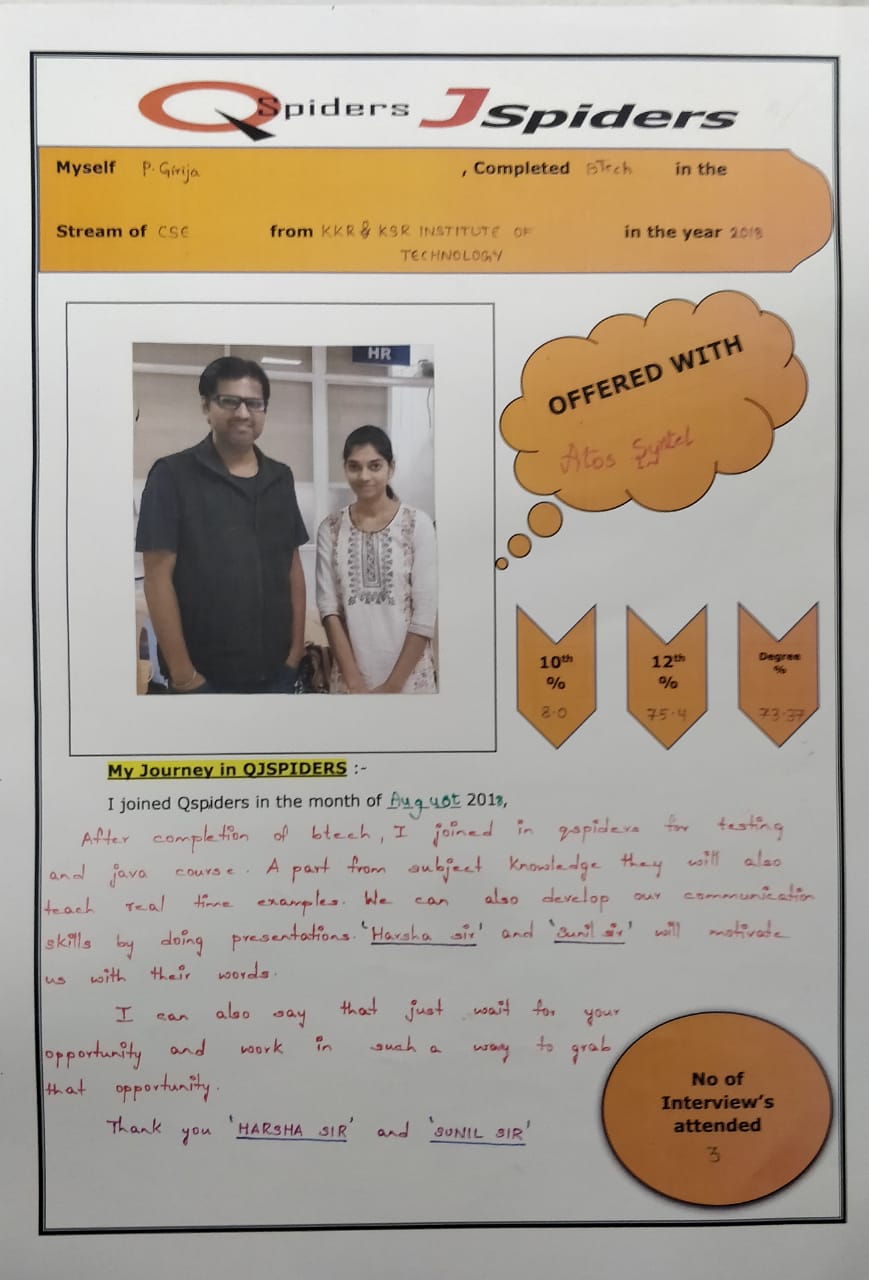 QSpiders JSpiders
Myself P. Girija , Completed BTech in the
Stream of CSE from KKR & KSR INSTITUTE OF TECHNOLOGY in the year 2018
HR
OFFERED WITH
Atos Syntel
10th % 8.0
12th % 75.4
Degree % 73.37
My Journey in QJSPIDERS :-
I joined Qspiders in the month of August 2018,
After completion of btech, I joined in qspiders for testing
and java course. A part from subject knowledge they will also
teach real time examples. We can also develop our communication
skills by doing presentations. 'Harsha sir' and 'Sunil sir' will motivate
us with their words.
I can also say that just wait for your
opportunity and work in such a way to grab
that opportunity.
Thank you 'HARSHA SIR' and 'SUNIL SIR'
No of
Interview's
attended
3